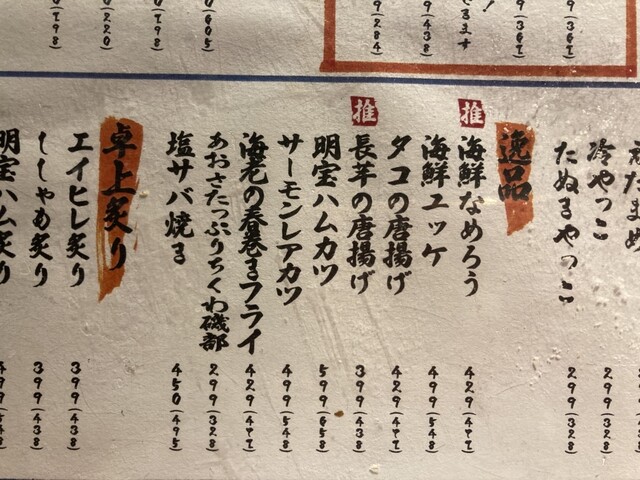 冷やっこ 299(328)
たぬきやっこ 299(328)
逸品
推 海鮮なめろう 429(471)
海鮮ユッケ 499(548)
タコの唐揚げ 429(471)
推 長芋の唐揚げ 399(438)
明宝ハムカツ 599(658)
サーモンレアカツ 499(548)
海老の春巻きフライ 429(471)
あおさたっぷりちくわ磯部 299(328)
塩サバ焼き 450(495)
卓上炙り
エイヒレ炙り 399(438)
ししゃも炙り 399(438)
明宝ハム炙り 499(548)